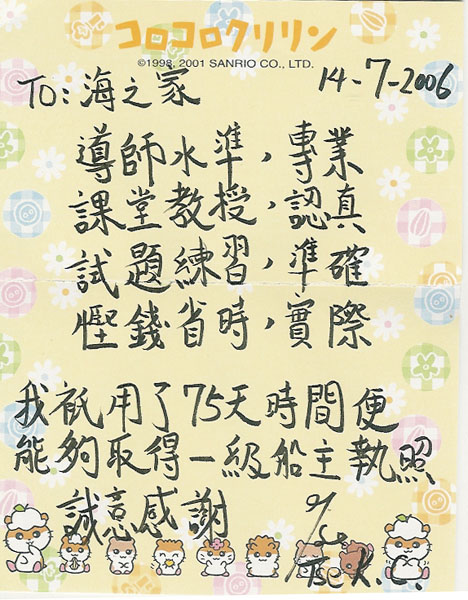 コロコロクリリン
©1998, 2001 SANRIO CO., LTD.
14-7-2006
TO: 海之家
導師水準，專業
課堂教授，認真
試題練習，準確
慳錢省時，實際
我祇用了75天時間便
能夠取得一級船主執照
誠意感謝
Tse K. C.